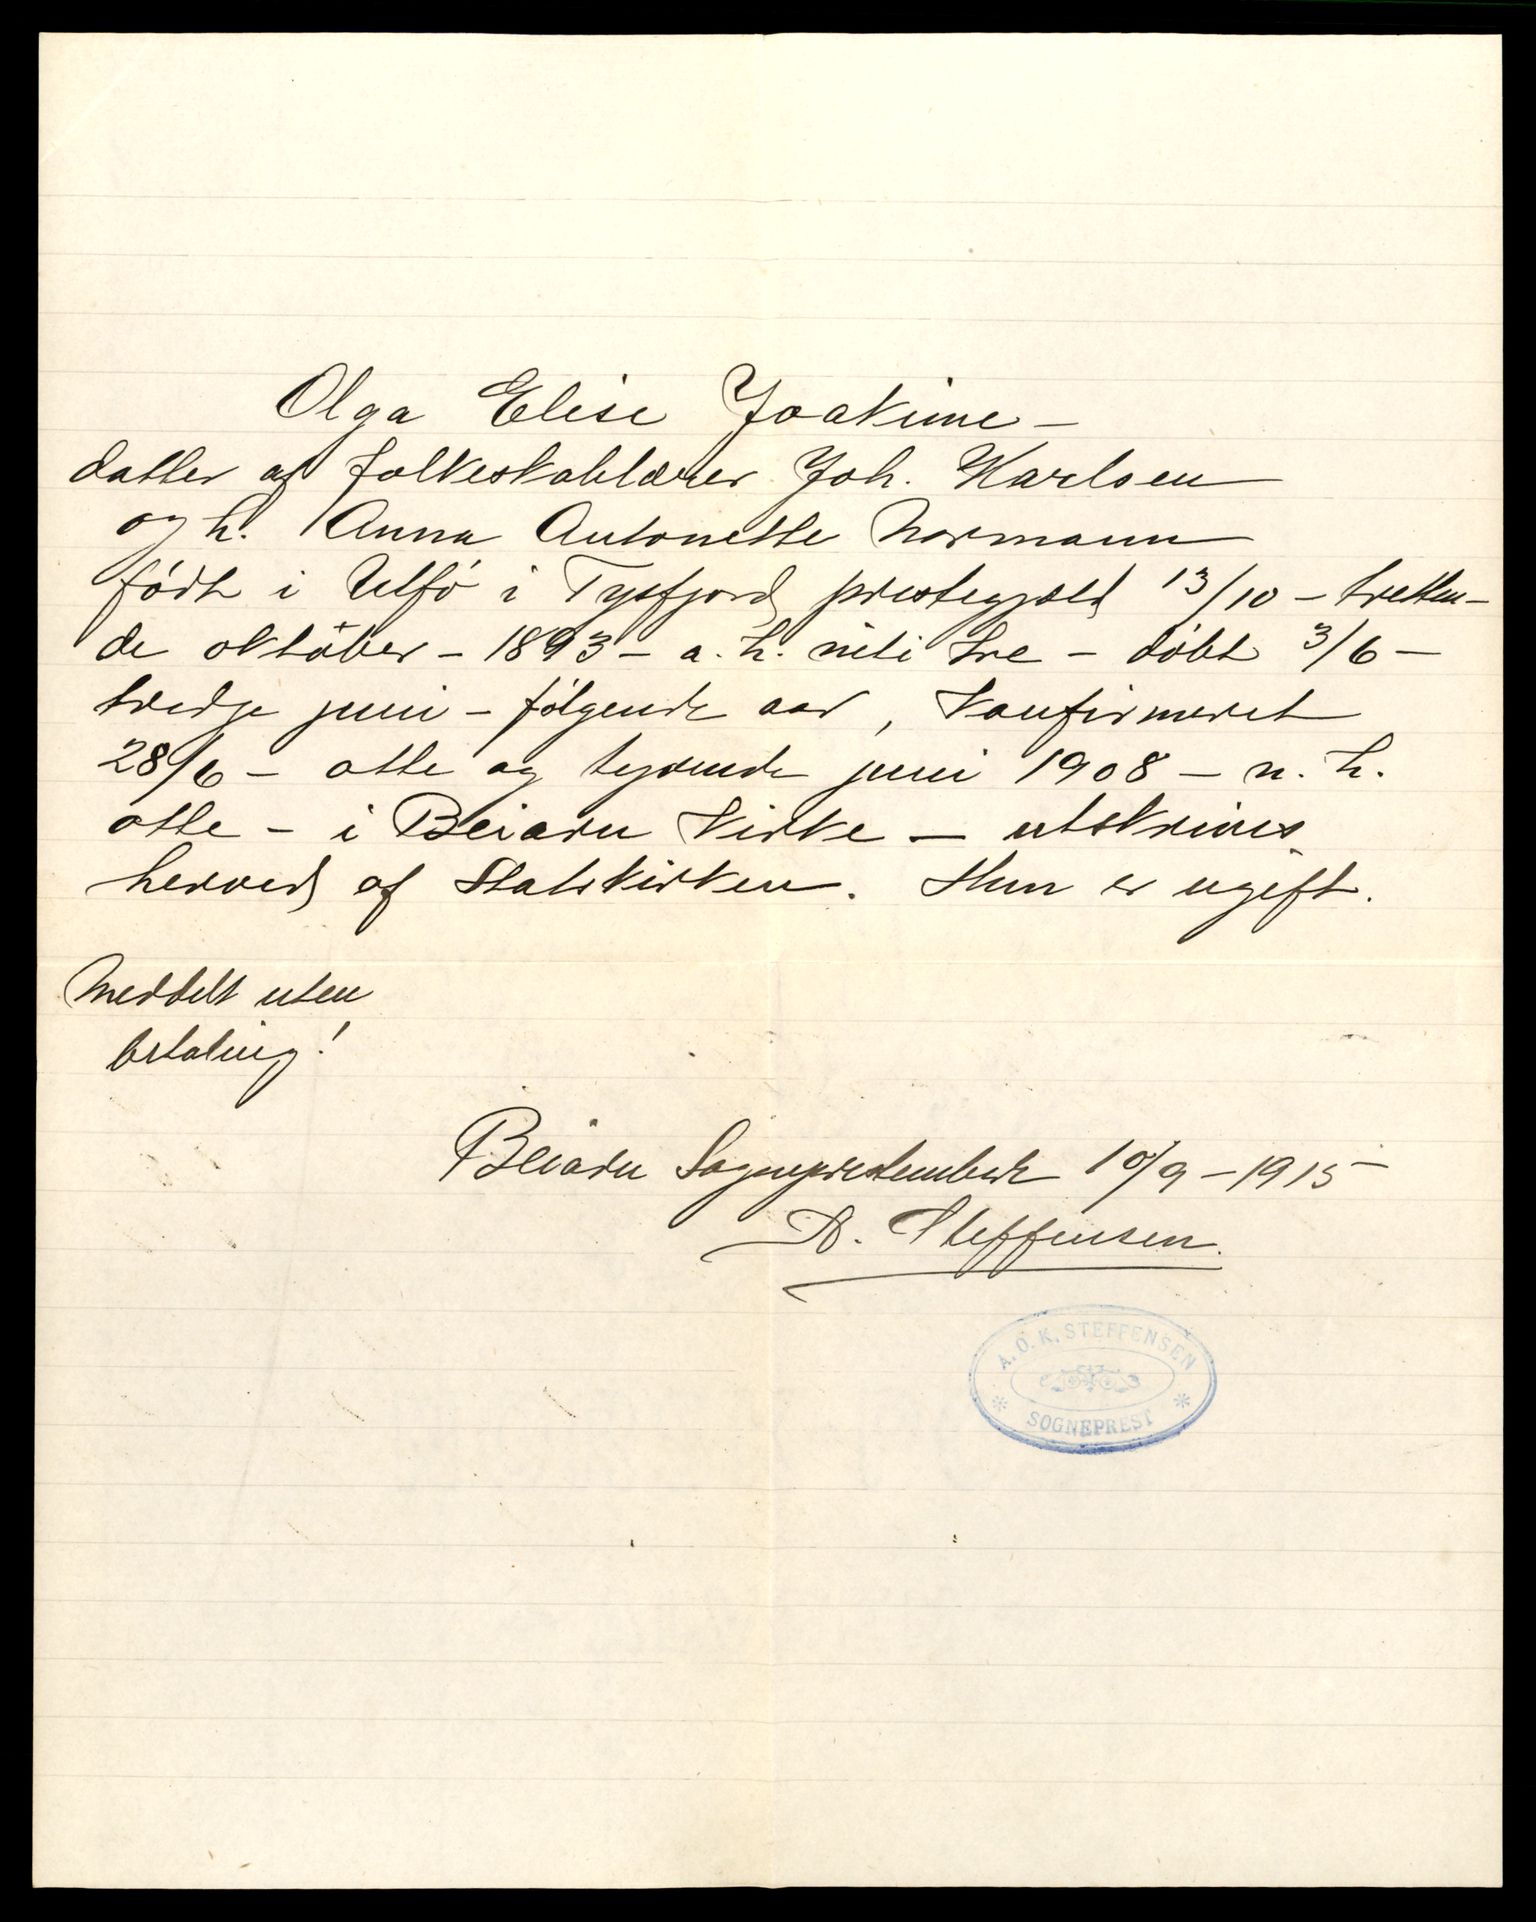 Olga Elise Joakime –
datter af folkeskolelærer Joh. Karlsen
og h. Anna Antonette Normann
födt i Ulfö i Tysfjord prestegjæld 13/10 – tretten-
de oktober – 1893 – a. h. niti tre – döbt 3/6 –
tredje juni – fölgende aar, konfirmeret
28/6 – otte og tyvende juni 1908 – n. h.
otte – i Beiarn kirke – utskrives
herved af Statskirken. Hun er ugift.
Meddelt uten
betaling!
Beiarn Sogneprestembede 10/9 – 1915
A. Steffensen.
A. O. K. STEFFENSEN
SOGNEPREST